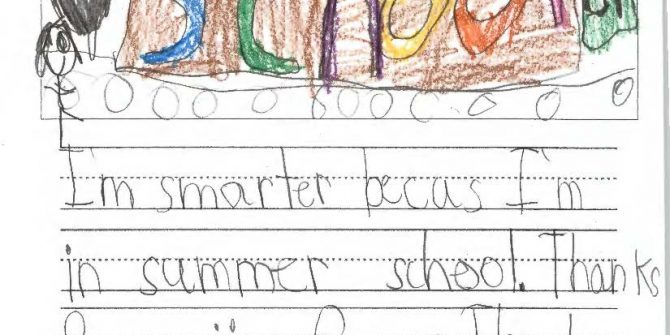 SCHOOL
I'm smarter becus I'm
in summer school. Thanks